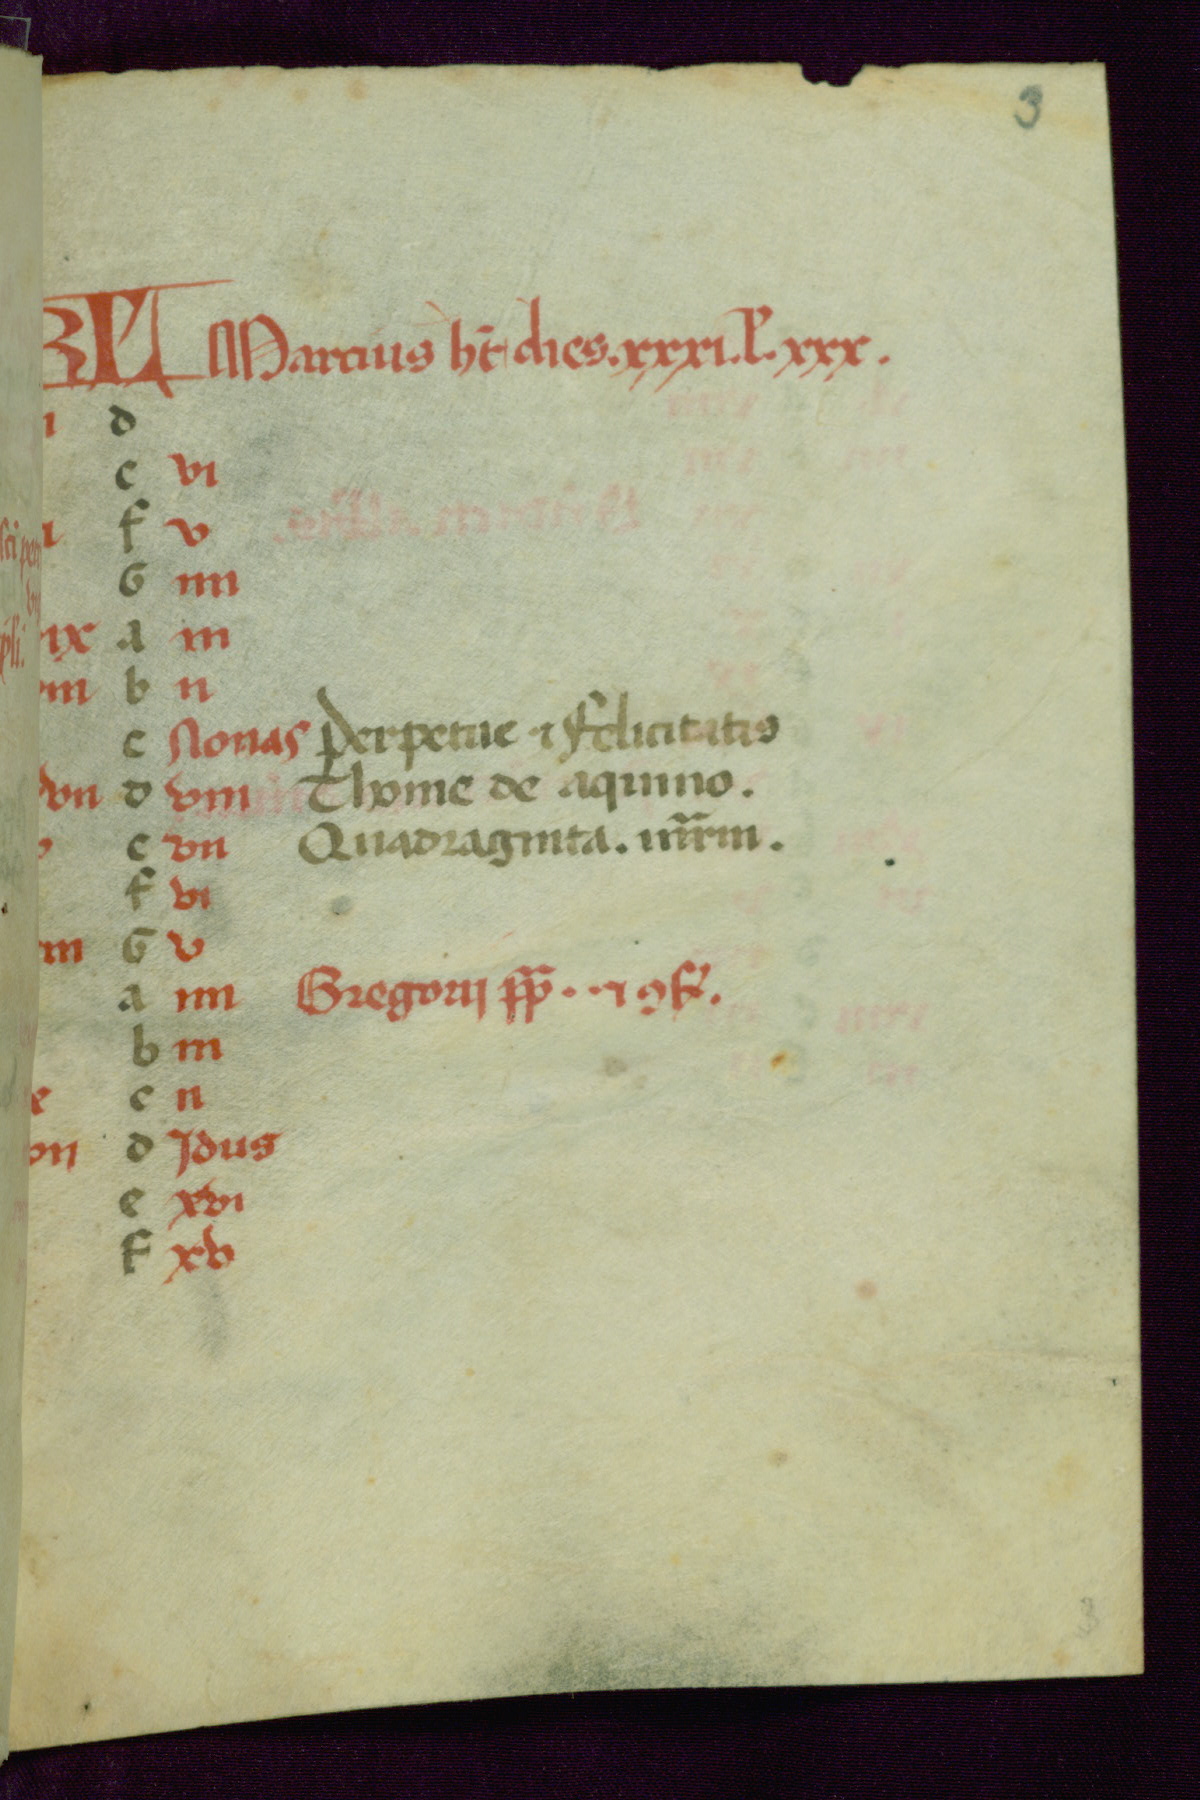 3
KL Marcius ht dies.xxxi.l.xxx.
d
e vi
f v
G iiii
ix a iii
b ii
c Nonas Perpetue ⁊ felicitatis
d viii Thome de aquino.
e vii Quadraginta. mrm.
f vi
G v
a iiii Gregorij pp. . ⁊ 9f.
b iii
c ii
d Idus
e xvi
f xv
3